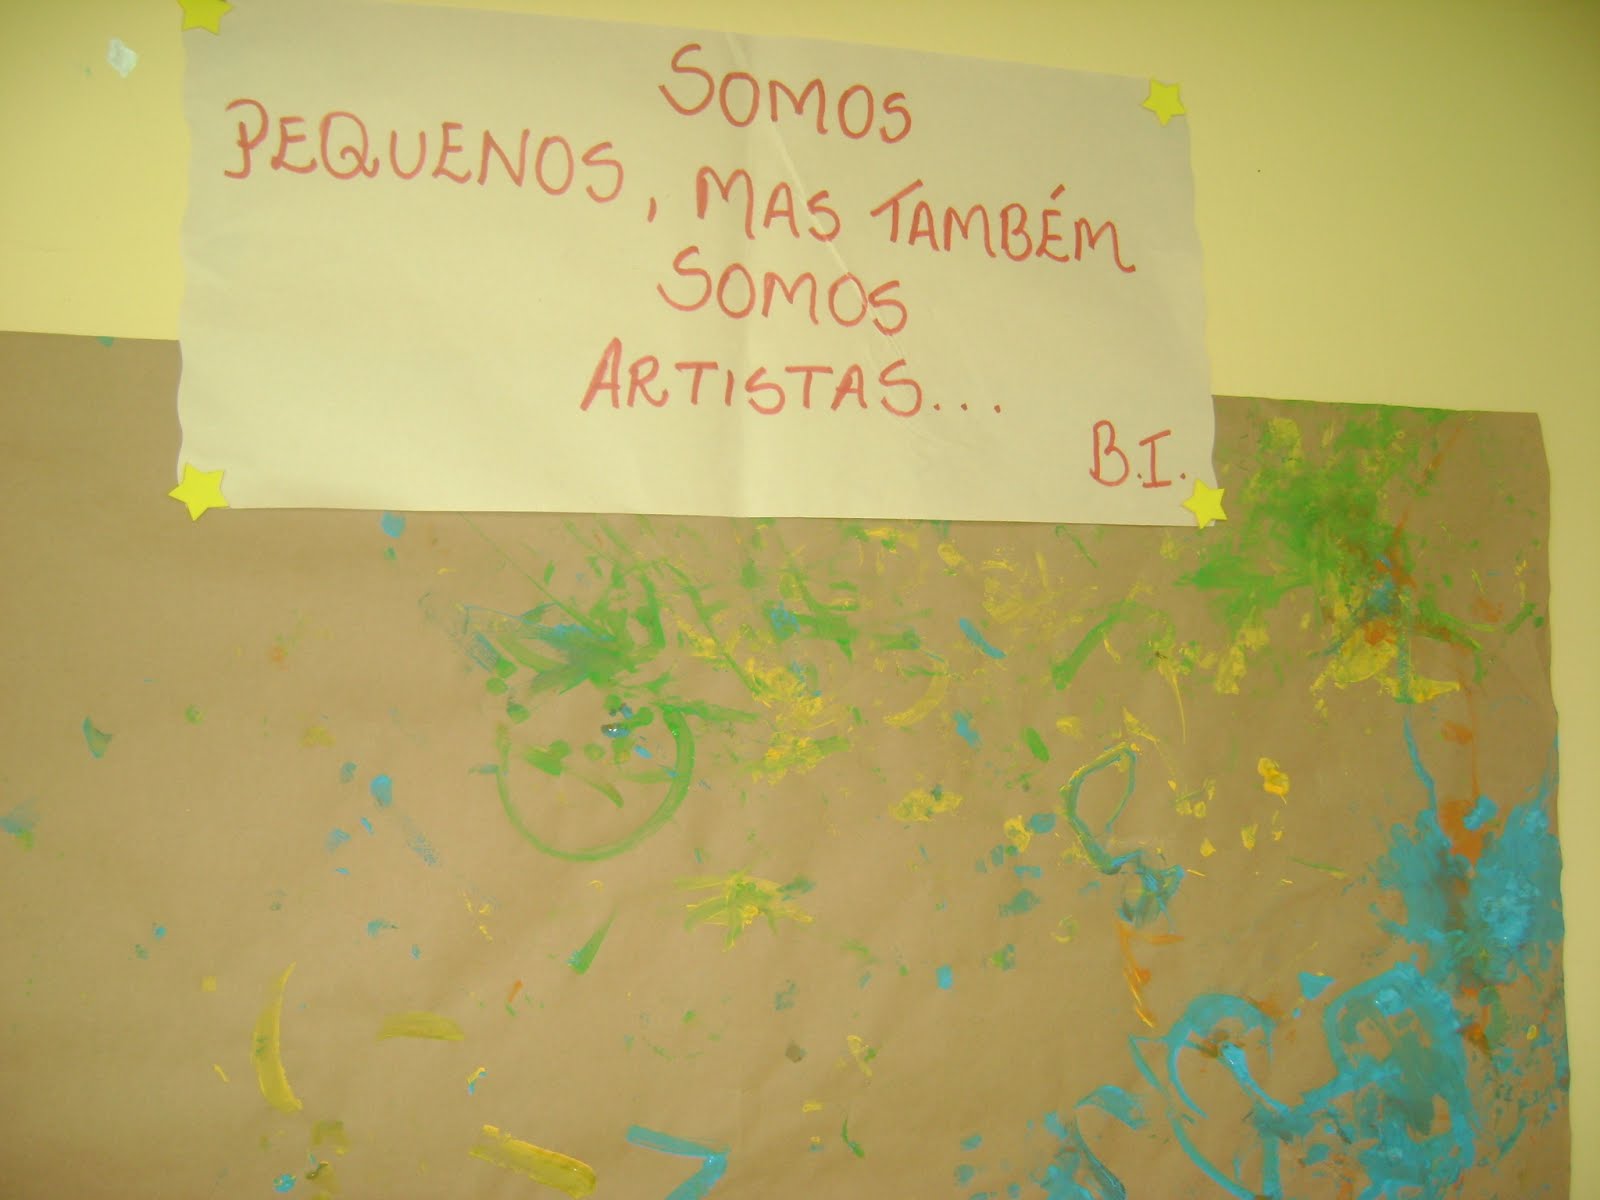 SOMOS
PEQUENOS, MAS TAMBÉM
SOMOS
ARTISTAS...
B.I.